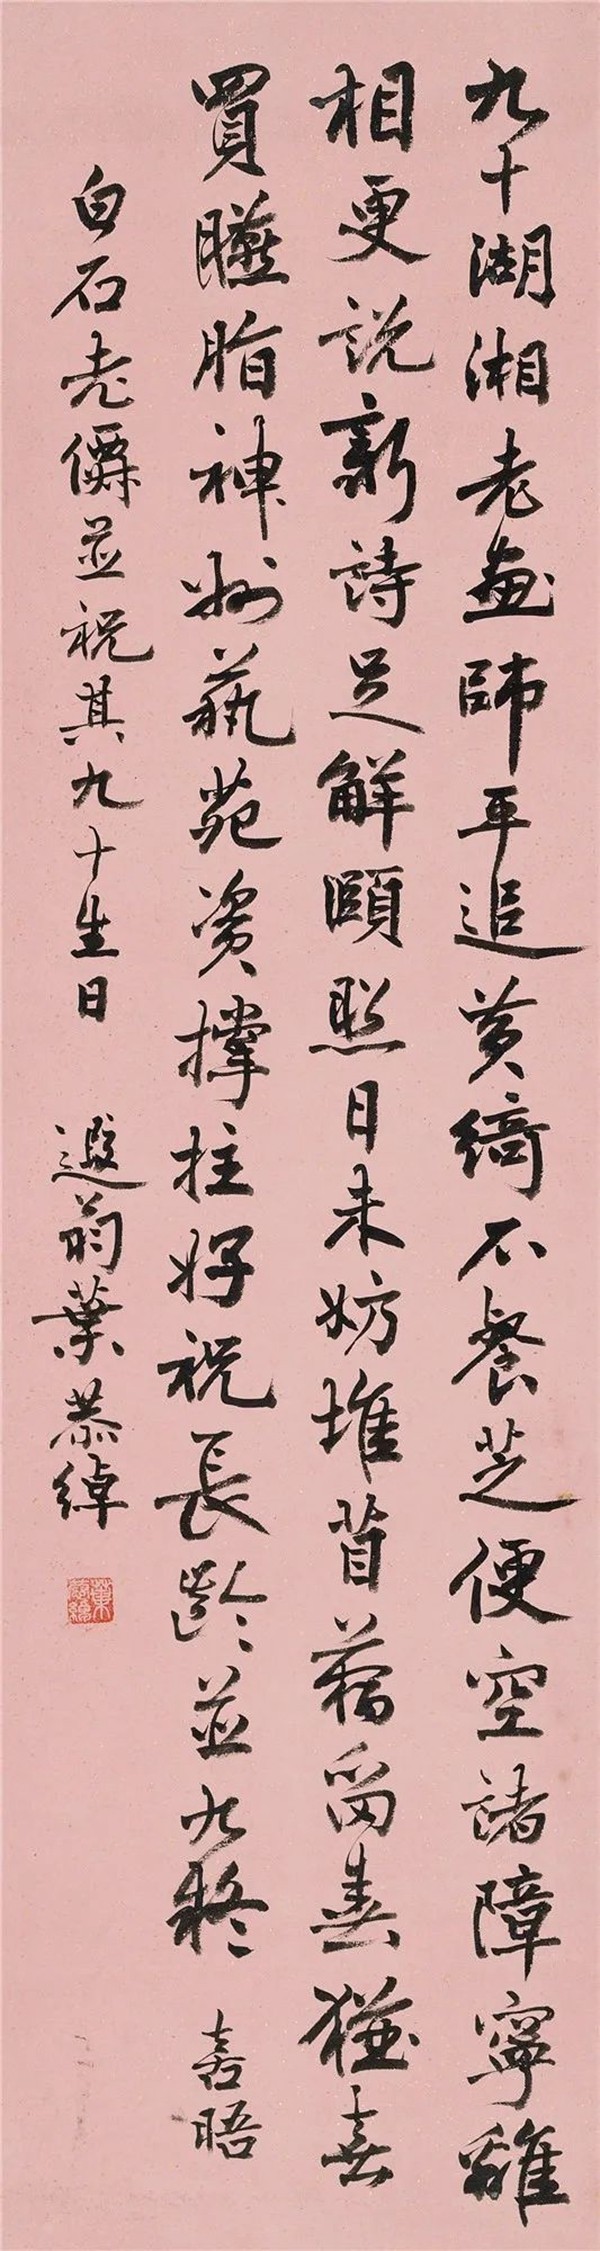 九十湖湘老畫師平追黄綺不餐芝便空諸障寧離
相更說新詩足解頤照日未妨堆苜蓿留春猶喜
買臙脂神州藝苑資撐拄好祝長齡並九 嘉晤
白石老僊並祝其九十生日 遐翁葉恭綽
葉恭綽